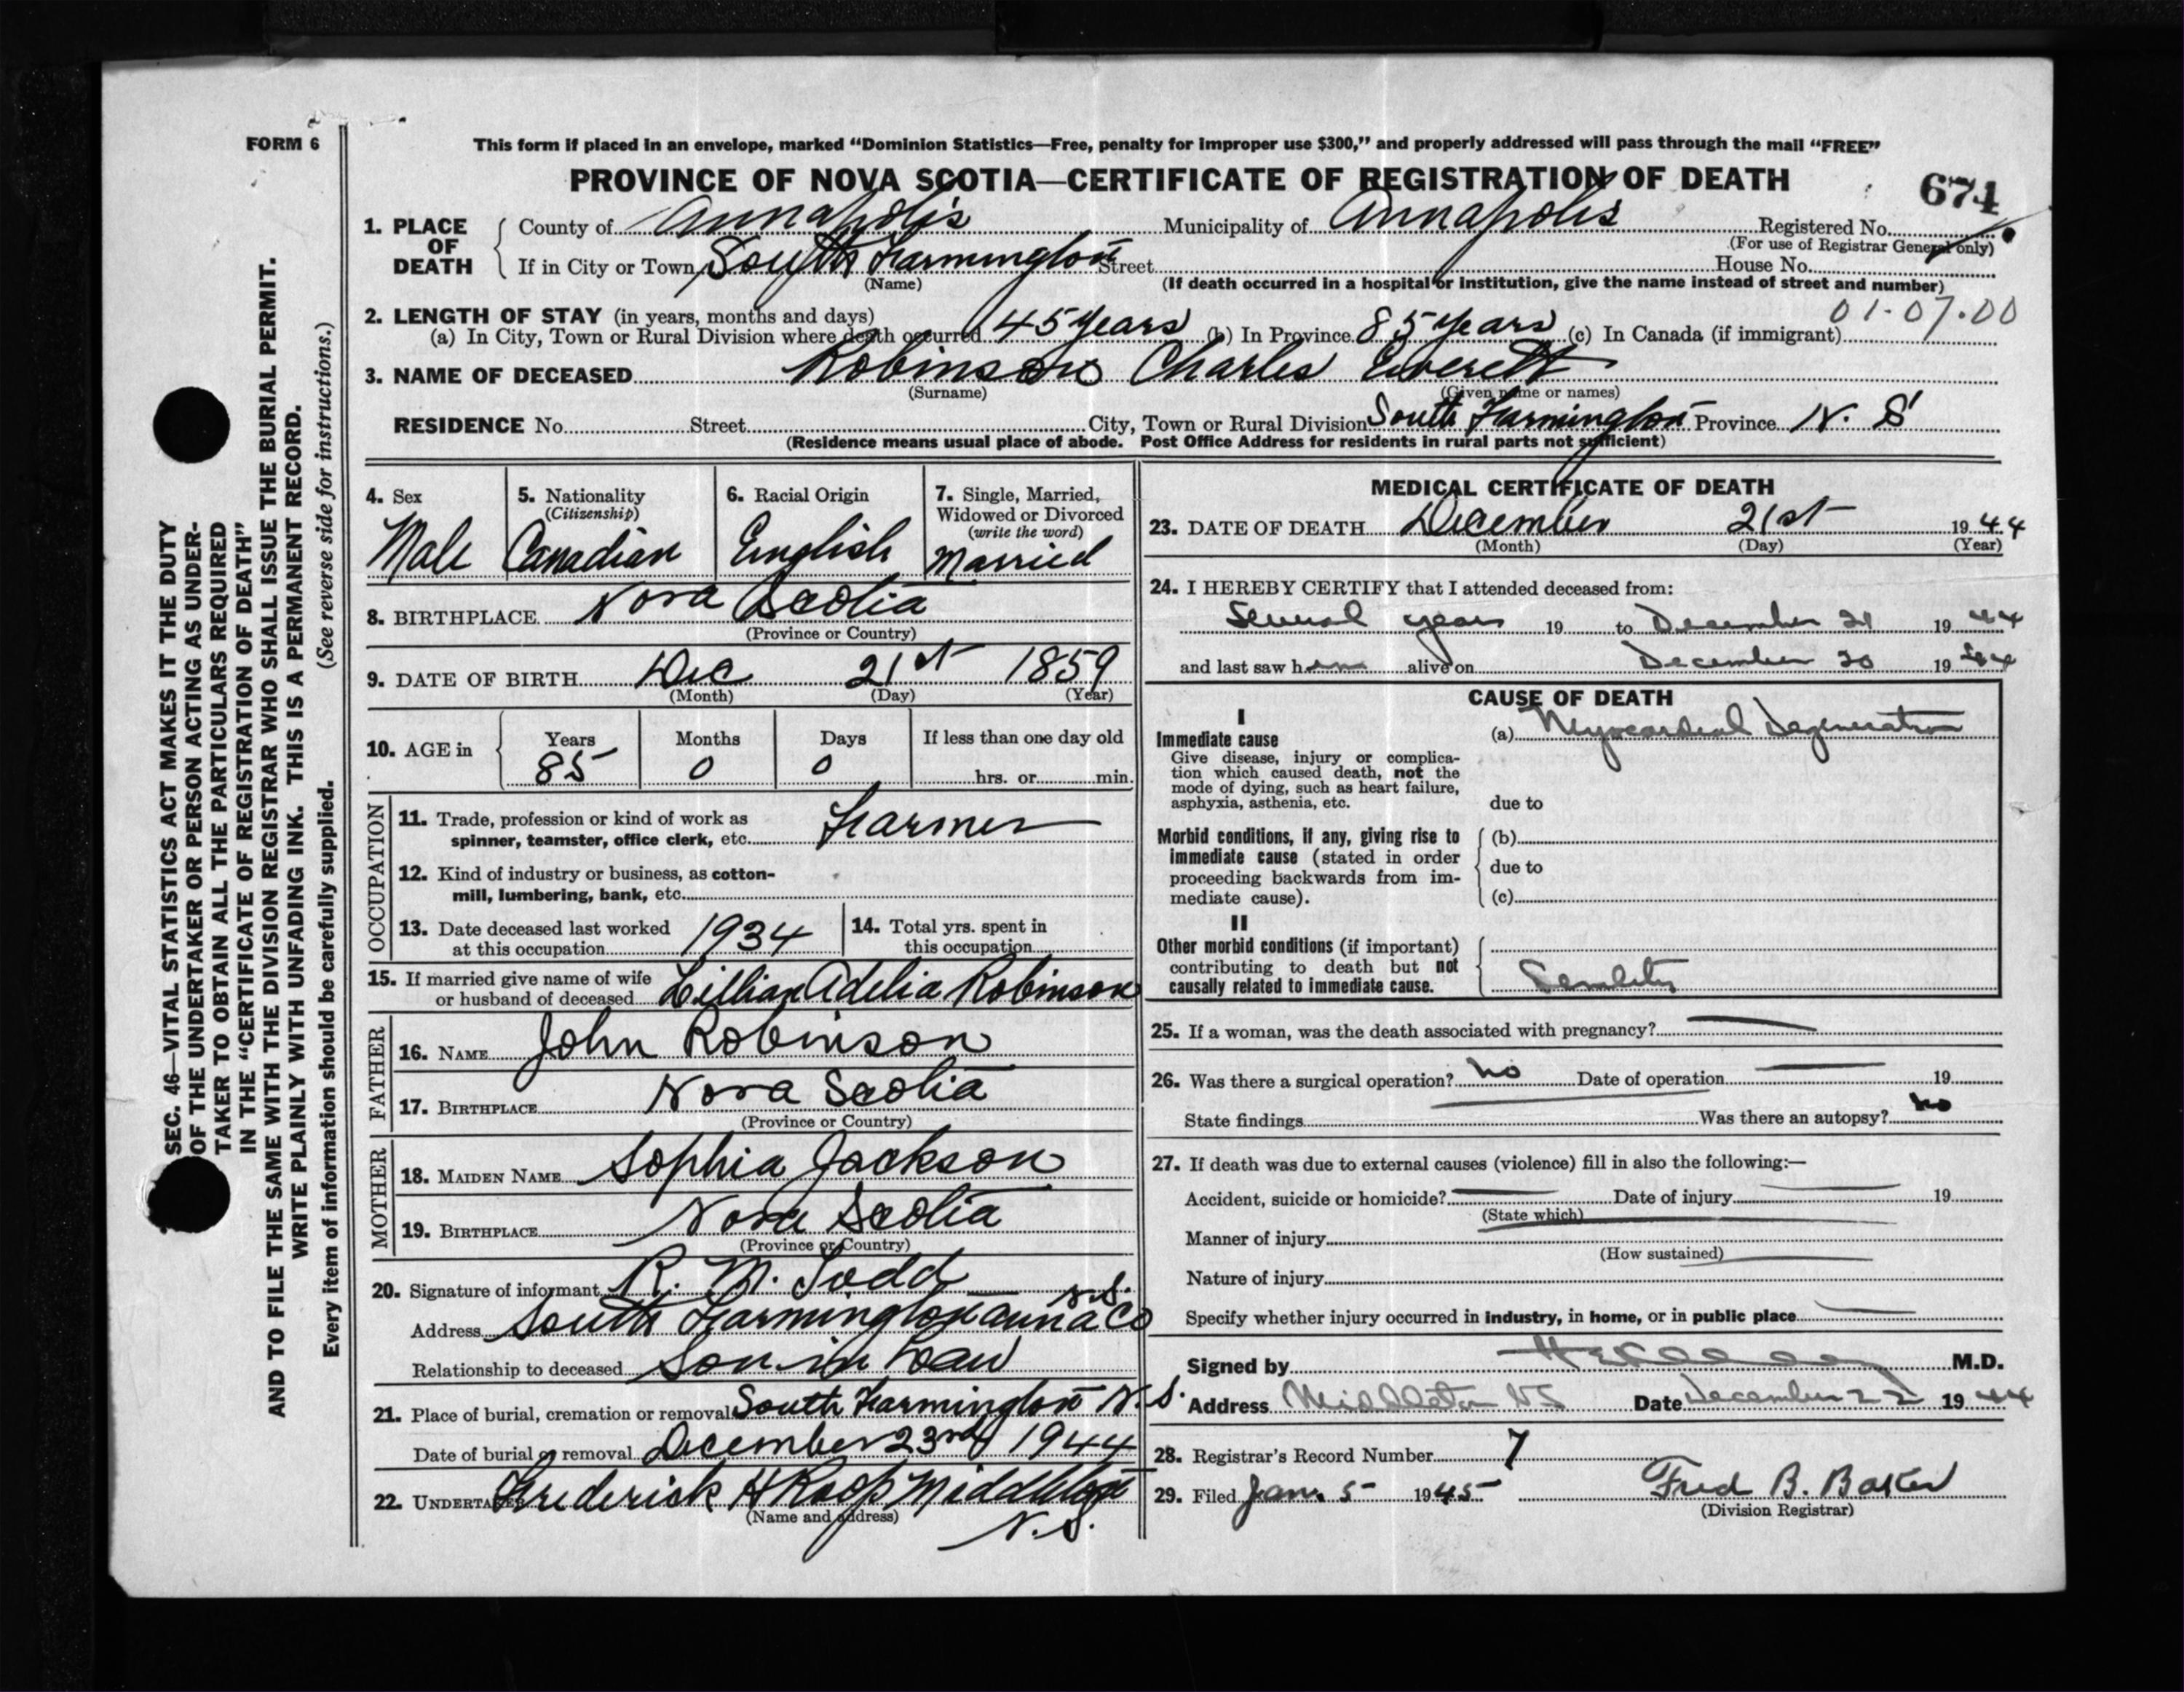 FORM 6
This form if placed in an envelope, marked “Dominion Statistics—Free, penalty for improper use $300,” and properly addressed will pass through the mail “FREE”
PROVINCE OF NOVA SCOTIA—CERTIFICATE OF REGISTRATION OF DEATH
674
1. PLACE OF DEATH County of Annapolis Municipality of Annapolis Registered No.
(For use of Registrar General only)
If in City or Town South Farmington Street House No.
(Name) (If death occurred in a hospital or institution, give the name instead of street and number)
01-07.00
2. LENGTH OF STAY (in years, months and days)
(a) In City, Town or Rural Division where death occurred 45 years (b) In Province 85 years (c) In Canada (if immigrant)
3. NAME OF DECEASED Robinson Charles Everett
(Surname) (Given name or names)
RESIDENCE No. Street City, Town or Rural Division South Farmington Province N. S
(Residence means usual place of abode. Post Office Address for residents in rural parts not sufficient)
4. Sex
Male
5. Nationality
(Citizenship)
Canadian
6. Racial Origin
English
7. Single, Married,
Widowed or Divorced
(write the word)
Married
8. BIRTHPLACE Nova Scotia
(Province or Country)
9. DATE OF BIRTH Dec 21st 1859
(Month) (Day) (Year)
10. AGE in Years Months Days If less than one day old
85 0 0 hrs. or min.
OCCUPATION
11. Trade, profession or kind of work as
spinner, teamster, office clerk, etc. Farmer
12. Kind of industry or business, as cotton-
mill, lumbering, bank, etc.
13. Date deceased last worked
at this occupation 1934
14. Total yrs. spent in
this occupation
15. If married give name of wife
or husband of deceased Lillian Adelia Robinson
FATHER
16. NAME John Robinson
17. BIRTHPLACE Nova Scotia
(Province or Country)
MOTHER
18. MAIDEN NAME Sophia Jackson
19. BIRTHPLACE Nova Scotia
(Province or Country)
20. Signature of informant R. M. Todd
N.S.
Address South Farmington Anna Co
Relationship to deceased Son in Law
21. Place of burial, cremation or removal South Farmington N.S.
Date of burial or removal December 23rd 1944
22. UNDERTAKER Frederick H Roop Middleton
(Name and address)
N.S.
MEDICAL CERTIFICATE OF DEATH
23. DATE OF DEATH December 21st 1944
(Month) (Day) (Year)
24. I HEREBY CERTIFY that I attended deceased from:
Several years 19 to December 21 1944
and last saw him alive on December 20 1944
CAUSE OF DEATH
I
Immediate cause
Give disease, injury or complica-
tion which caused death, not the
mode of dying, such as heart failure,
asphyxia, asthenia, etc.
(a) Myocardial Degeneration
due to
Morbid conditions, if any, giving rise to
immediate cause (stated in order
proceeding backwards from im-
mediate cause).
(b)
due to
(c)
II
Other morbid conditions (if important)
contributing to death but not
causally related to immediate cause.
Senility
25. If a woman, was the death associated with pregnancy? —
26. Was there a surgical operation? No Date of operation — 19
State findings Was there an autopsy? No
27. If death was due to external causes (violence) fill in also the following:—
Accident, suicide or homicide? — Date of injury — 19
(State which)
Manner of injury
(How sustained)
Nature of injury
Specify whether injury occurred in industry, in home, or in public place —
Signed by M.D.
Address Middleton NS Date December 22 1944
28. Registrar's Record Number 7
29. Filed Jan. 5 1945 Fred B. Baker
(Division Registrar)
SEC. 46—VITAL STATISTICS ACT MAKES IT THE DUTY
OF THE UNDERTAKER OR PERSON ACTING AS UNDER-
TAKER TO OBTAIN ALL THE PARTICULARS REQUIRED
IN THE “CERTIFICATE OF REGISTRATION OF DEATH”
AND TO FILE THE SAME WITH THE DIVISION REGISTRAR WHO SHALL ISSUE THE BURIAL PERMIT.
WRITE PLAINLY WITH UNFADING INK. THIS IS A PERMANENT RECORD.
Every item of information should be carefully supplied. (See reverse side for instructions.)